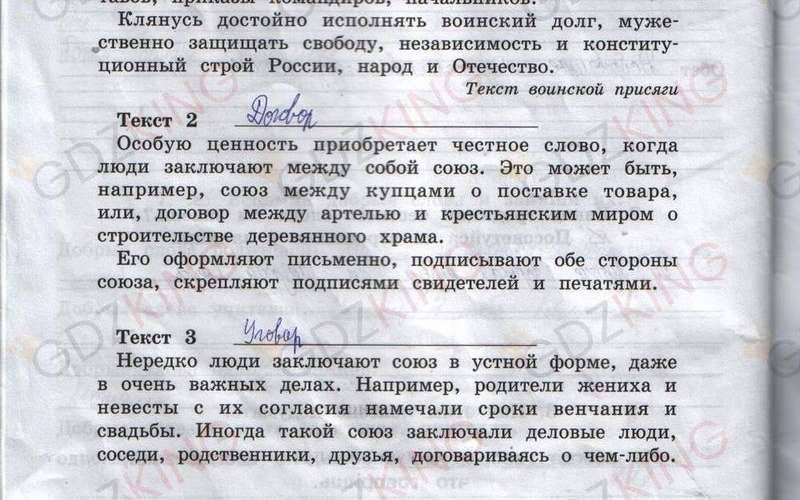 тавов, приказы командиров, начальников.
Клянусь достойно исполнять воинский долг, муже-
ственно защищать свободу, независимость и конститу-
ционный строй России, народ и Отечество.
Текст воинской присяги
Текст 2 Договор
Особую ценность приобретает честное слово, когда
люди заключают между собой союз. Это может быть,
например, союз между купцами о поставке товара,
или, договор между артелью и крестьянским миром о
строительстве деревянного храма.
Его оформляют письменно, подписывают обе стороны
союза, скрепляют подписями свидетелей и печатями.
Текст 3 Уговор
Нередко люди заключают союз в устной форме, даже
в очень важных делах. Например, родители жениха и
невесты с их согласия намечали сроки венчания и
свадьбы. Иногда такой союз заключали деловые люди,
соседи, родственники, друзья, договариваясь о чем-либо.
GDZKING